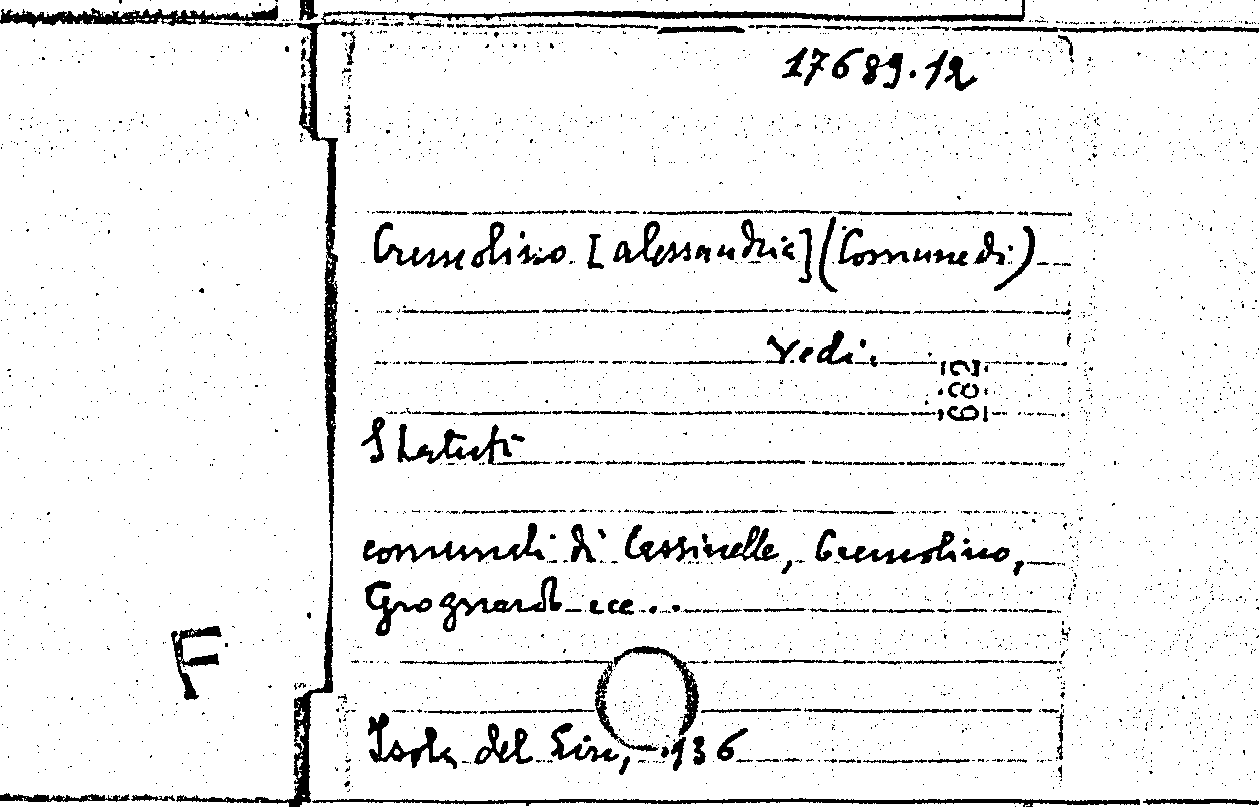 17689.12
Cremolino [Alessandria] (Comune di)
Vedi.
682
Statuti
comunali di Cassinelle, Cremolino,
Grognardo ecc..
Isola del Liri, 1936
F